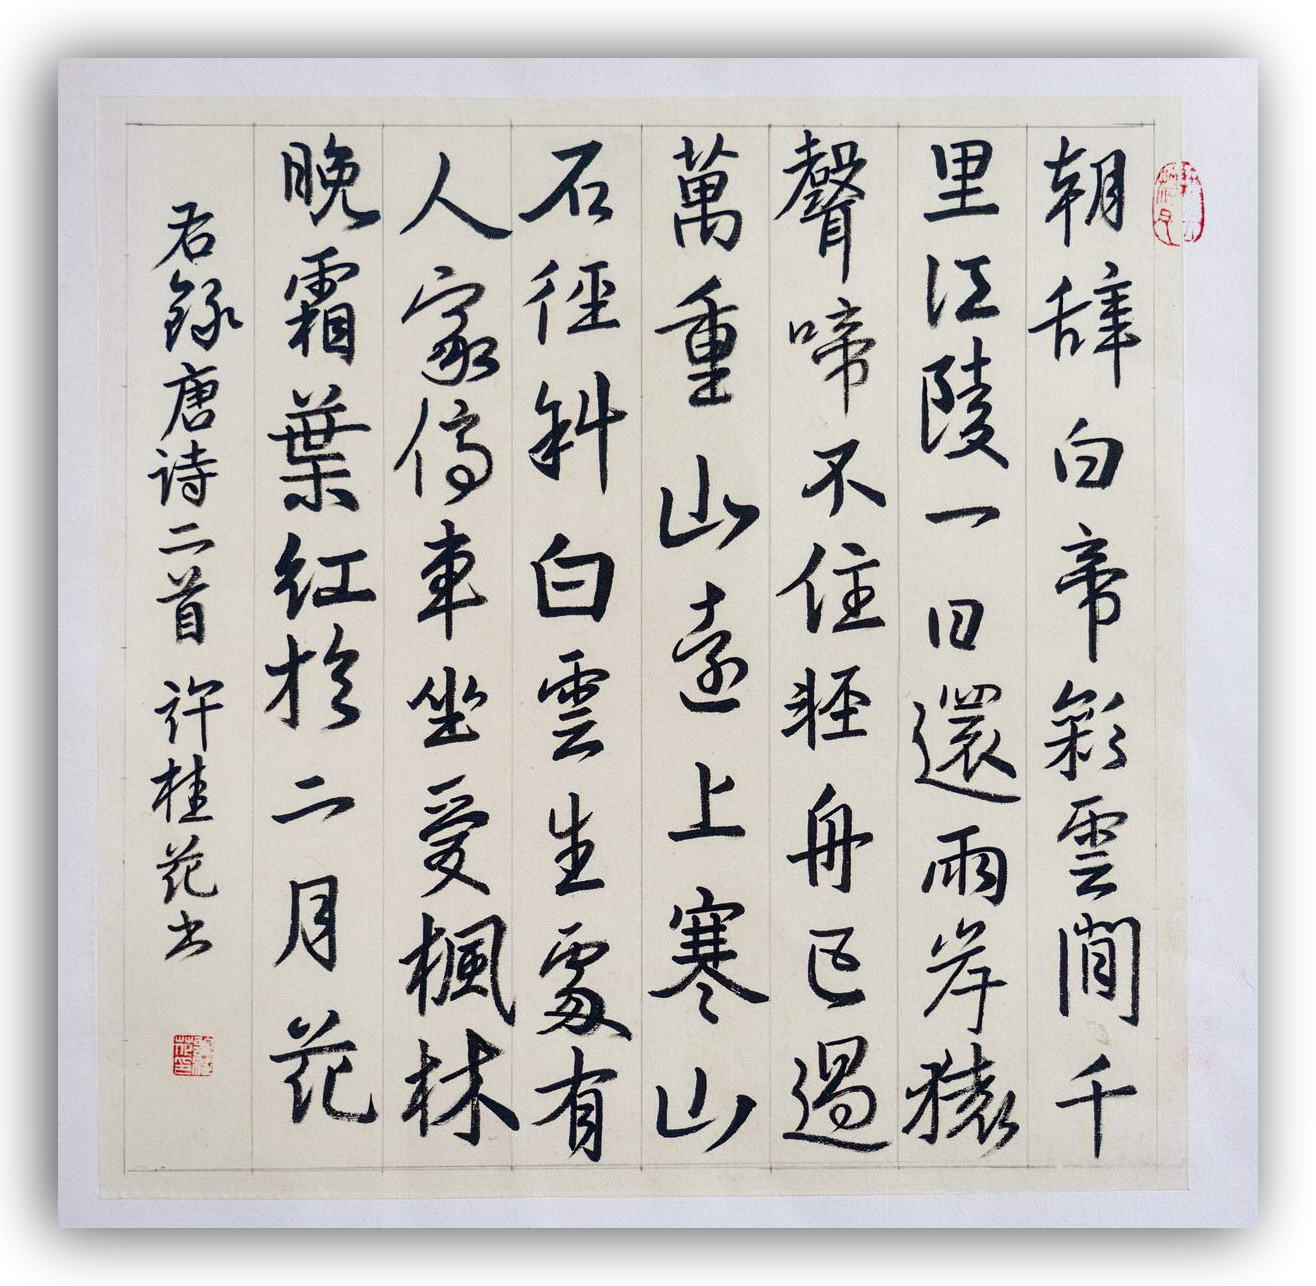 朝辞白帝彩雲間千
里江陵一日還兩岸猿
聲啼不住輕舟已過
萬重山遠上寒山
石徑斜白雲生處有
人家停車坐愛楓林
晚霜葉紅於二月花
右錄唐诗二首 许桂花书